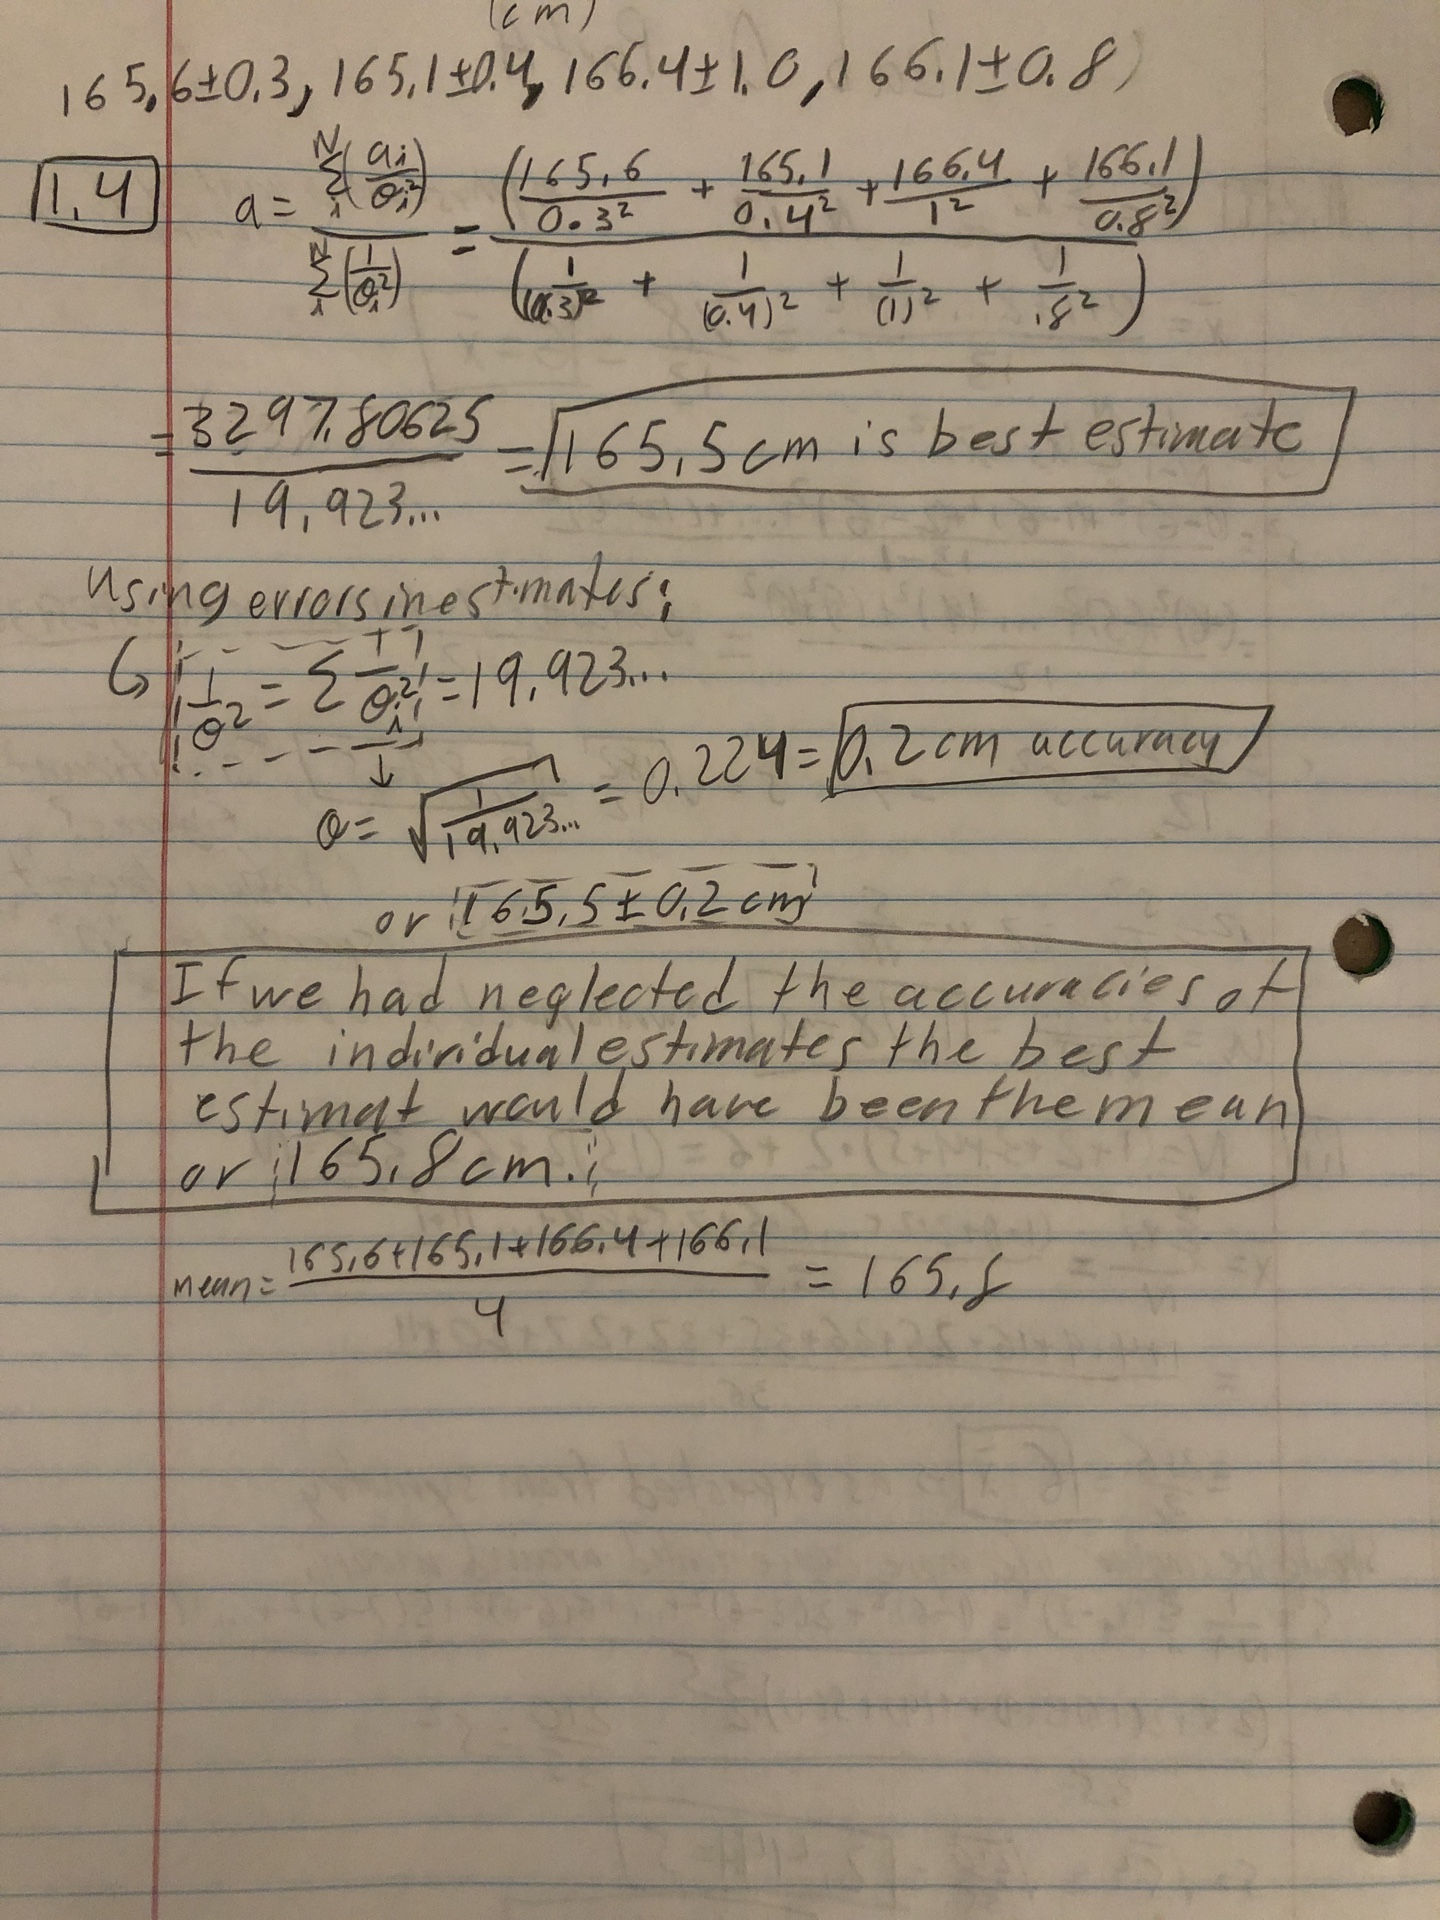 (cm)
165.6±0.3, 165.1±0.4, 166.4±1.0, 166.1±0.8)
1.4 a = Σ_i^N (a_i/σ_i²) / Σ_i^N (1/σ_i²) = (165.6/0.3² + 165.1/0.4² + 166.4/1² + 166.1/0.8²) / (1/(0.3)² + 1/(0.4)² + 1/(1)² + 1/.8²)
= 3297.80625 / 19.923... = 165.5cm is best estimate
Using errors in estimates:
↳ 1/σ² = Σ 1/σ_i² = 19.923...
↓
σ = √(1/19.923...) = 0.224 = 0.2cm accuracy
or 165.5±0.2cm
If we had neglected the accuracies of
the individual estimates the best
estimat would have been the mean
or 165.8cm.
mean = 165.6+165.1+166.4+166.1 / 4 = 165.8